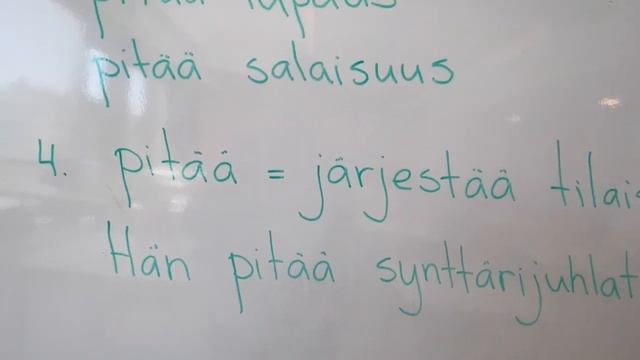 pitää lupaus
pitää salaisuus
4. pitää = järjestää tilais
Hän pitää synttärijuhlat